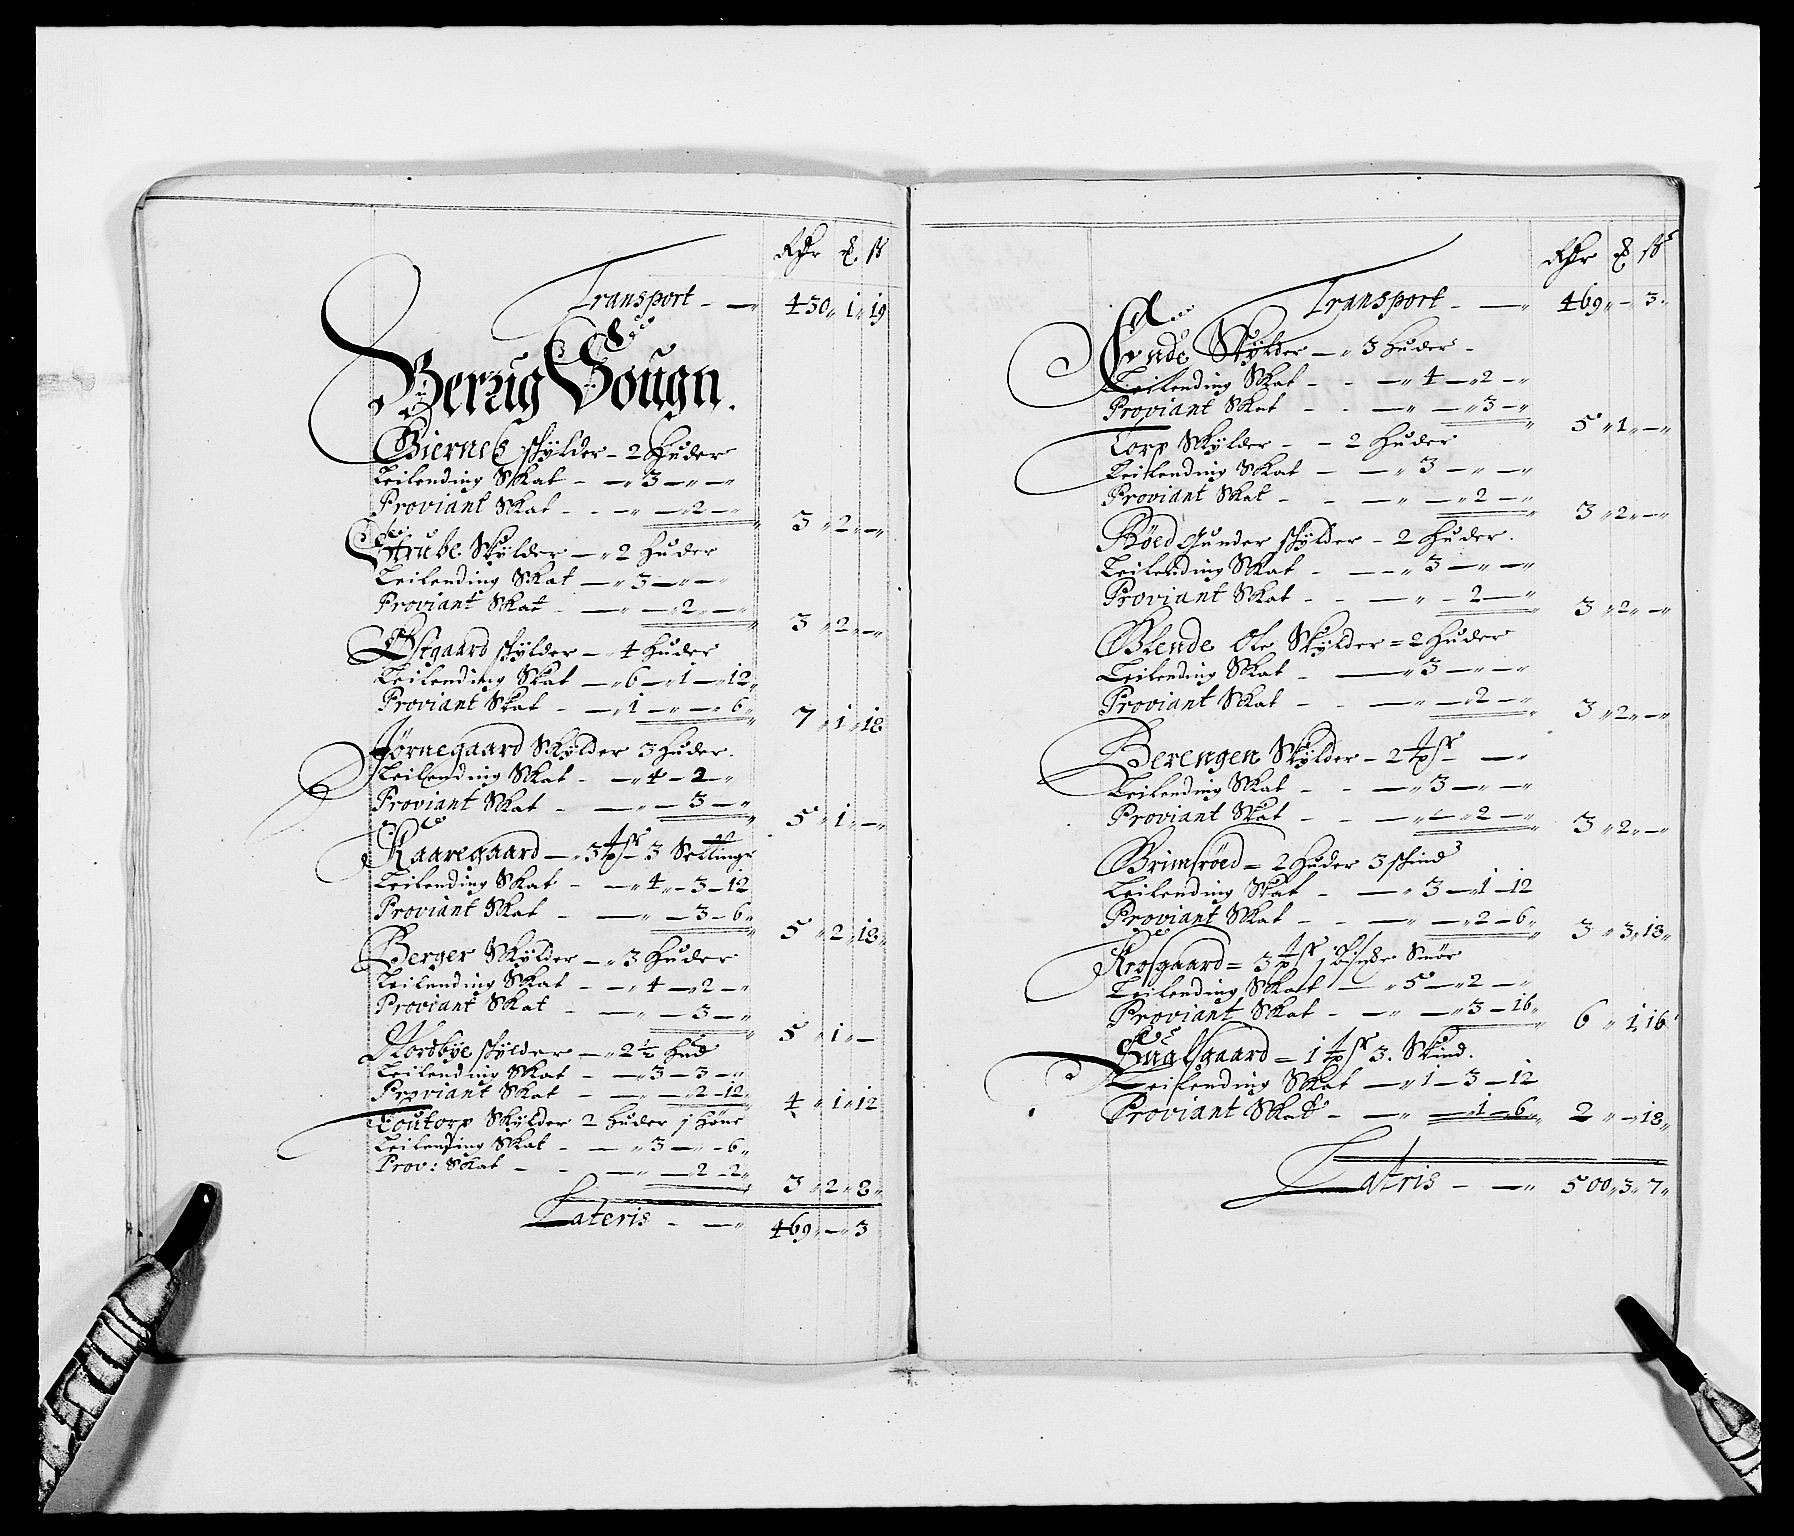 Rdr ₰ ß
Transport - — „ 430 „ 1 „ 19
Berug Sougn.
Biernes skylder - 2 Huder
Leilending Skat - — „ 3 — „ — „
Proviant Skat - - — „ — „ 2 — „
3 „ 2 „ — „
Strube Skylder — „ 2 Huder
Leilending Skat — „ 3 — „ — „
Proviant Skat - — „ — „ 2 „ — „
3 „ 2 „ — „
Østgaard skylder — „ 4 Huder
Leilending Skat — „ 6 — „ 1 — „ 12 „
Proviant Skat - — „ 1 — „ — „ 6 „
7 „ 1 „ 18
Jørnegaard Skylder 3 Huder.
Leilending Skat - — „ 4 - 2 - „
Proviant Skat - — „ — 3 — „
5 „ 1 „ — „
Kaaregaard — „ 3 ſp 3 Setting
Leilending Skat - — „ 4 „ - 3 - 12
Proviant Skat - — „ — 3 - 6 „
5 „ 2 „ 18 „
Berger Skylder — „ 3 Huder
Leilending Skat - — „ 4 — „ 2 - „
Proviant Skat - — „ — 3 — „
5 „ 1 „ —
Nordbye skylder — „ 2 ½ Hud
Leilending Skat - — „ 3 - 3 - „
Proviant Skat - — „ — „ 2 - 12 „
4 „ 1 „ 12
Toutorp Skylder 2 Huder 1 Høne
Leilending Skat - — „ 3 — „ - 6 „
Prov: Skat - - — „ — 2 - 2 „
3 „ 2 „ 8 „
Lateris - — „ 469 „ — „ 3
Rdr ₰ ß
Transport - — „ 469 „ - „ 3 „
Skylder — „ 3 Huder -
Leilending Skat - - — „ 4 — „ 2 — „
Proviant Skat - - — „ — „ 3 — „
5 „ 1 „ — „
Torp Skylder - - 2 Huder
Leilending Skat - — „ 3 — „ — „
Proviant Skat - - — „ — „ 2 — „
3 „ 2 „ — „
Røed Gunder skylder - 2 Huder.
Leilending Skat - — „ 3 — „ — „
Proviant Skat - - — „ - 2 — „
3 „ 2 „ — „
Blende Ole Skylder = 2 Huder
Leilending Skat - — „ 3 — „ — „
Proviant Skat - - — „ — „ 2 — „
3 „ 2 „ — „
Berengen Skylder - 2 ſp - — „
Leilending Skat - - — „ 3 — „ — „
Proviant Skat - - — „ — „ 2 — „
3 „ 2 „ — „
Brimsrøed = 2 Huder 3 skind
Leilending Skat - — „ 3 — „ 1 - 12
Proviant Skat - - — „ — „ 2 - 6 „
3 „ 3 „ 18 „
Krosgaard = 3 ſp 1 Smør
Leilending Skatt — „ 5 — „ 2 — „
Proviant Skat - — „ — „ 3 - 16 „
6 „ 1 „ 16
= 1 ſp 3. Skind.
Leilending Skat — „ 1 - 3 - 12
Proviant Skat - — „ — „ 1 - 6 „ 2 „ - „ 18 „
Latris - — „ 500 „ 3 „ 7 „